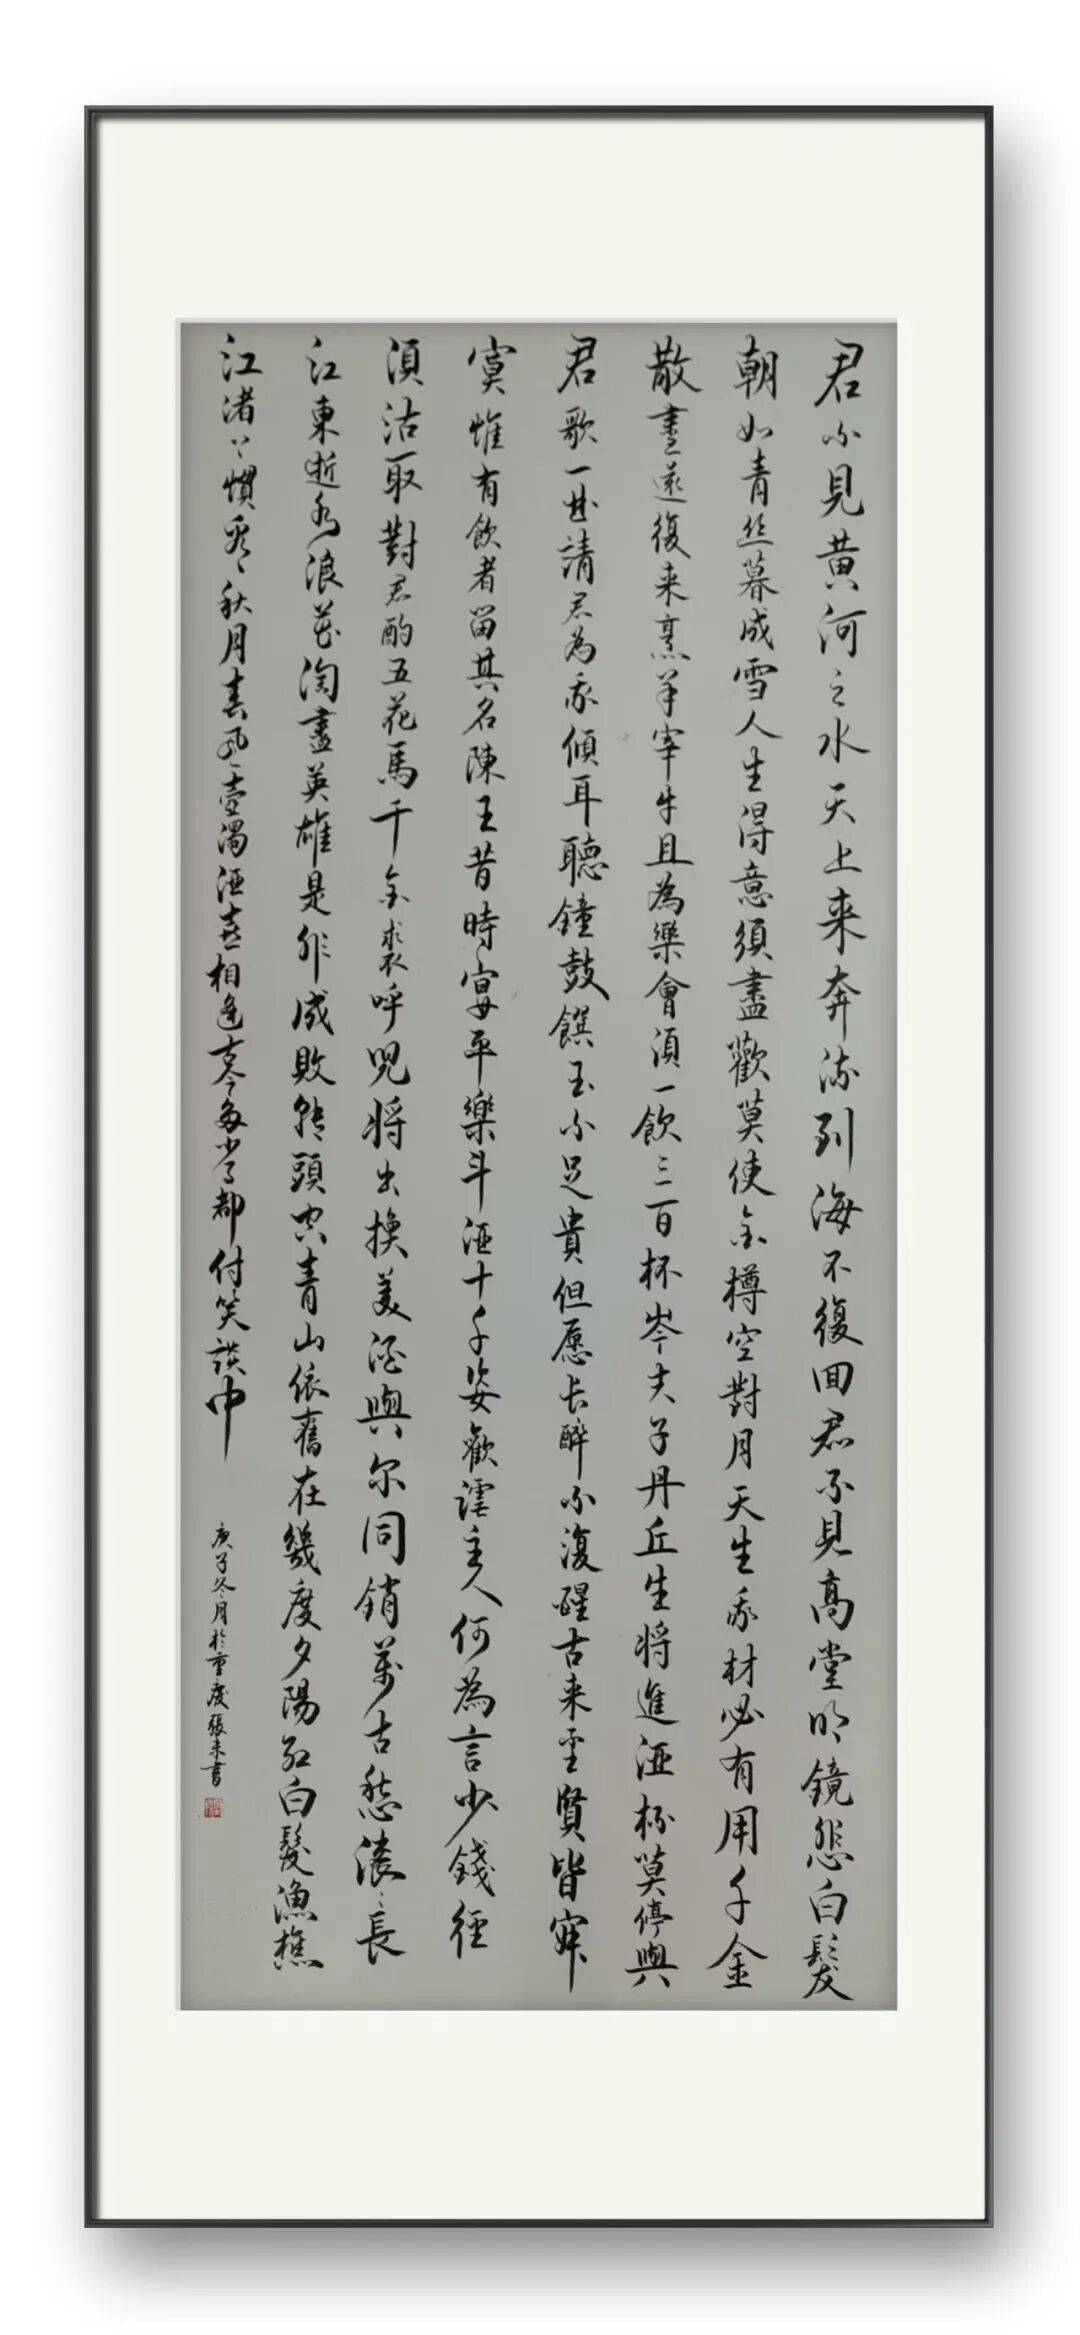 君不見黄河之水天上来奔流到海不復回君不見高堂明鏡悲白髮
朝如青丝暮成雪人生得意須盡歡莫使金樽空對月天生我材必有用千金
散盡還復来烹羊宰牛且為樂會須一飲三百杯岑夫子丹丘生将進酒杯莫停與
君歌一曲請君為我傾耳聽鐘鼓饌玉不足貴但愿長醉不復醒古来聖賢皆寂
寞惟有飲者留其名陳王昔時宴平樂斗酒十千恣歡謔主人何為言少錢徑
須沽取對君酌五花馬千金裘呼兒将出換美酒與尔同銷萬古愁滚〻長
江東逝水浪花淘盡英雄是非成敗转頭空青山依舊在幾度夕陽红白髮漁樵
江渚上慣看秋月春風一壺濁酒喜相逢古今多少事都付笑談中
庚子冬月於重慶張未書